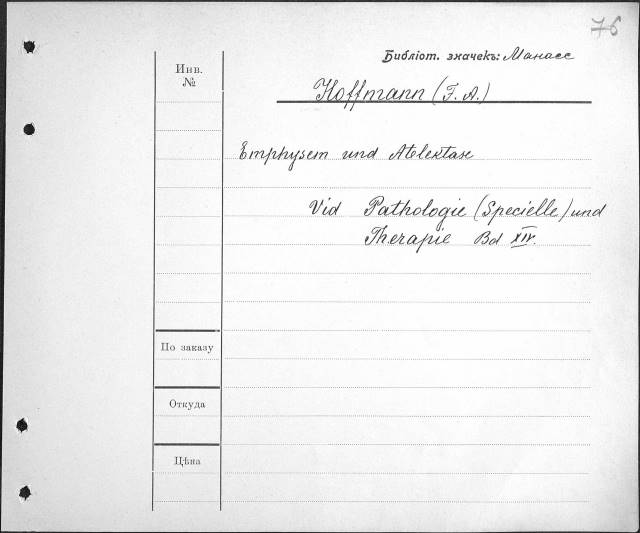 76
Библіот. значекъ: Манасс
Инв.
№
Hoffmann (F. A.)
Emphysem und Atelektase
Vid Pathologie (Specielle) und
Therapie Bd XIV.
По заказу
Откуда
Цѣна